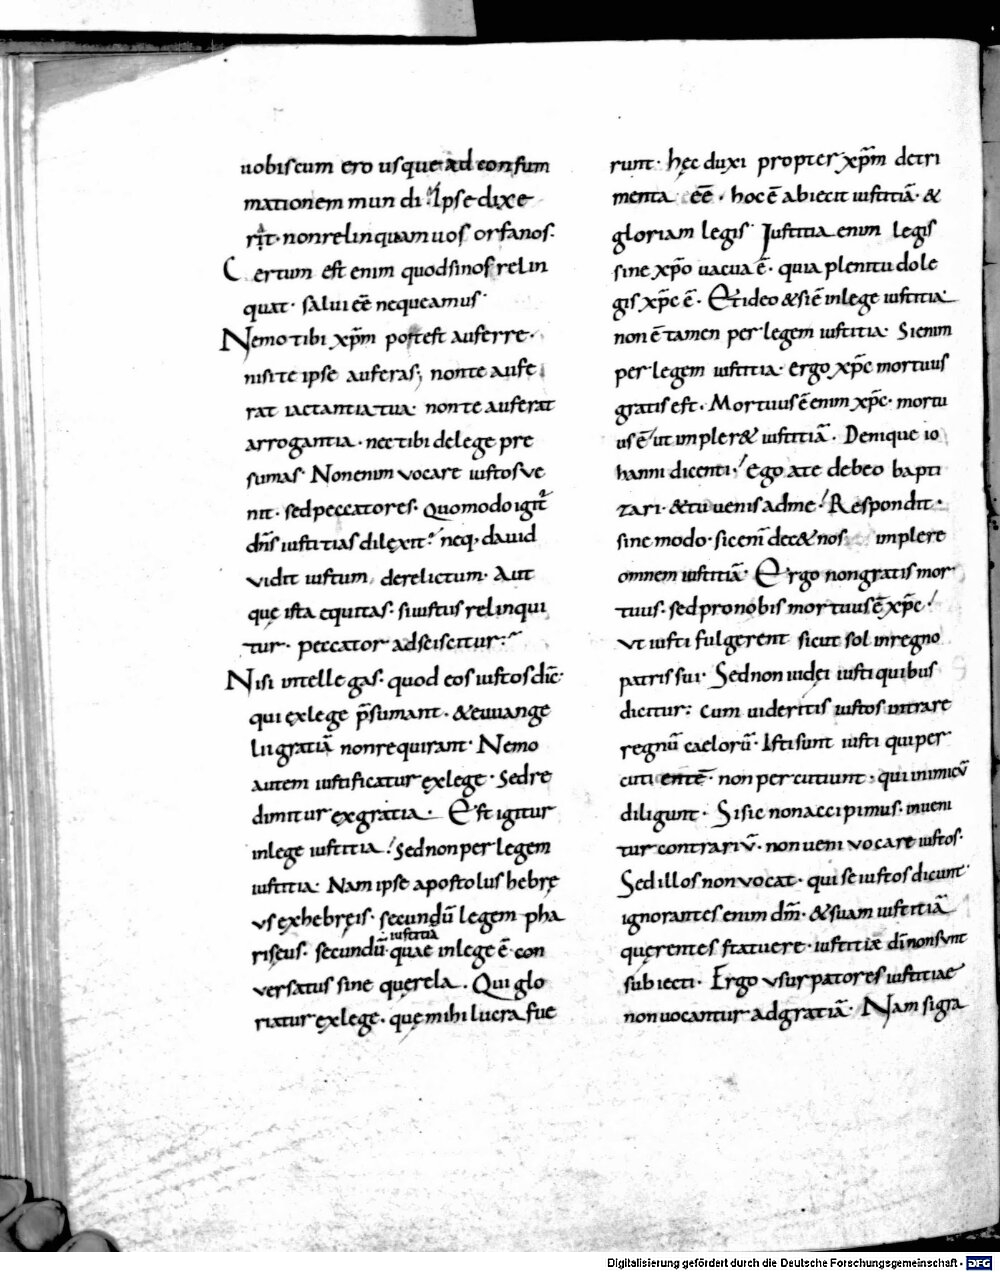 uobiscum ero usque ad consum
mationem mundi. Ipse dixe
rat. non relinquam uos orfanos.
Certum est enim quod si nos relin
quat. salui eē nequeamus.
Nemo tibi xp̄m potest auferre.
nisi te ipse auferas; non te aufe
rat iactantia tua. non te auferat
arrogantia. nec tibi de lege pre
sumas. Non enim vocare iustos ve
nit. sed peccatores. Quomodo igit̄
dn̄s iustitias dilexit? neq, dauid
vidit iustum, derelictum. Aut
quę ista equitas. si iustus relinqui
tur. peccator adsciscitur?
Nisi intellegas. quod eos iustos dic̄
qui ex lege p̄sumant. & euuange
lii gratiā non requirant. Nemo
autem iustificatur ex lege. Sed re
dimitur ex gratia. Est igitur
in lege iustitia. Sed non per legem
iustitia. Nam ipse apostolus hebrę
vs ex hebręis. secundū legem pha
risęus. secundū iustitia quae in lege ē. con
versatus sine querela. Qui glo
riatur ex lege. quę mihi lucra fue
runt. hęc duxi propter xp̄m detri
menta eē. hoc ē abiecit iustitiā. &
gloriam legis. Iustitia enim legis
sine xp̄o uacua ē. quia plenitudo le
gis xp̄c ē. Et ideo & si ē in lege iustitia
non ē tamen per legem iustitia. Si enim
per legem iustitia. ergo xp̄c mortuus
gratis est. Mortuus ē enim xp̄c. mortu
us ē ut impler& iustitiā. Denique io
hanni dicenti. Ego a te debeo bapti
zari. & tu uenis ad me! Respondit.
sine modo. sic enī dec& nos implere
omnem iustitiā. Ergo non gratis mor
tuus. sed pro nobis mortuus ē xp̄c!
Vt iusti fulgerent sicut sol in regno
patris sui. Sed non uidei iusti quibus
dicitur: Cum uideritis iustos intrare
regnū caelorū. Isti sunt iusti qui per
cuti entē. non percutiunt. qui inimicū
diligunt. Si sic non accipimus. inueni
tur contrariū. non ueni vocare iustos.
Sed illos non vocat. qui se iustos dicunt.
ignorantes enim dm̄. & suam iustitiā
querentes statuere. iustitiae dī non sunt
subiecti. Ergo vsurpatores iustitiae
non uocantur ad gratiā. Nam si gra
Digitalisierung gefördert durch die Deutsche Forschungsgemeinschaft - DFG